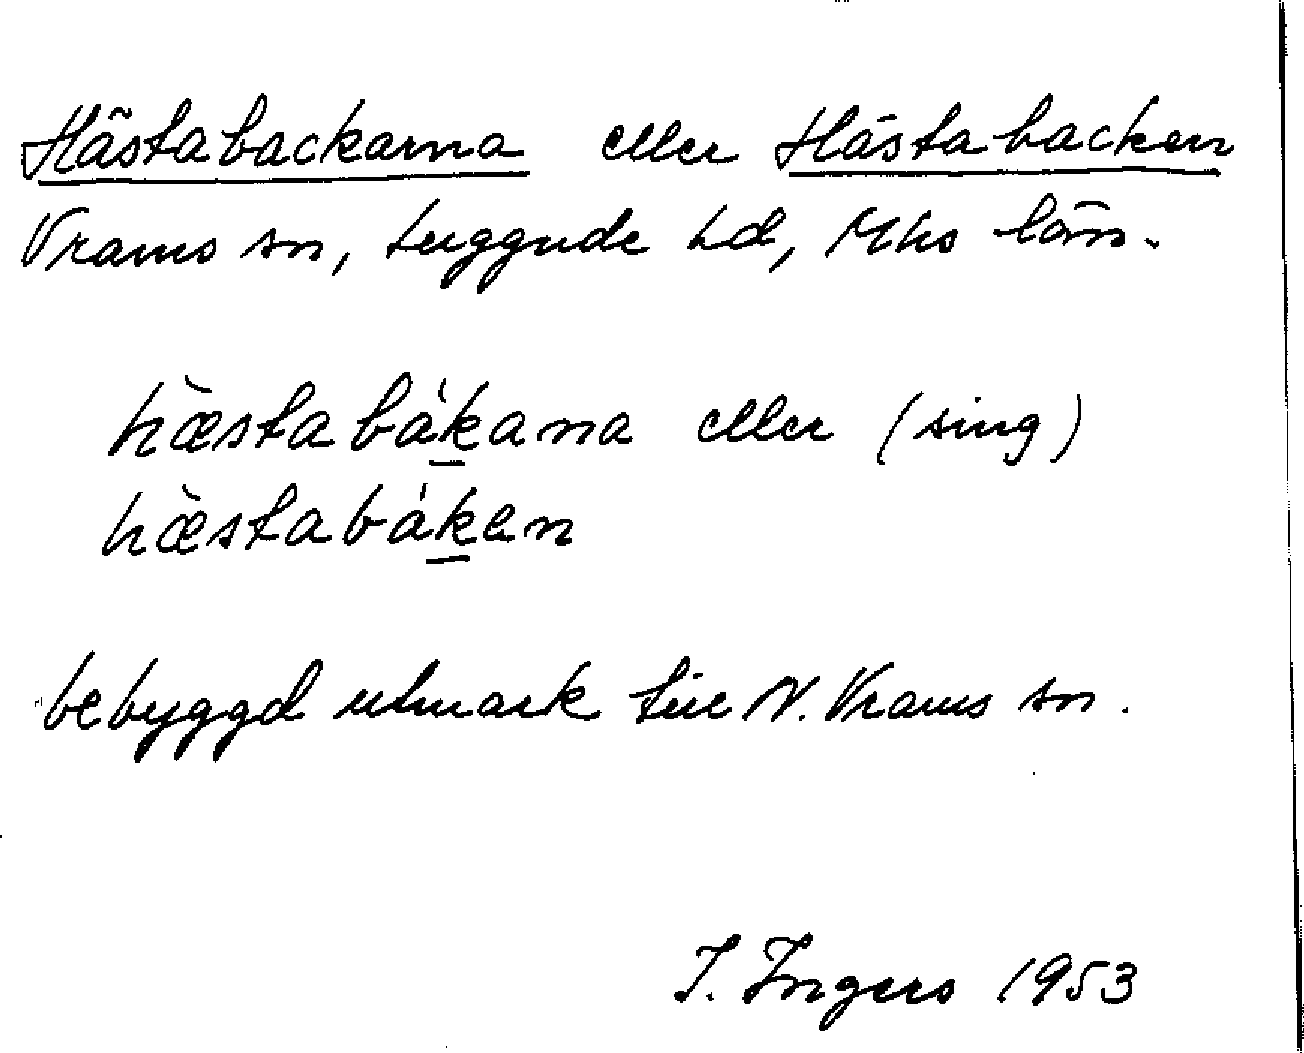 Hästabackarna eller Hästabacken
Vrams sn, Luggude hd, Mhs län.
hæ̀stabákana eller (sing)
hæ̀stabáken
bebyggd utmark till N. Vrams sn.
I. Ingers 1953